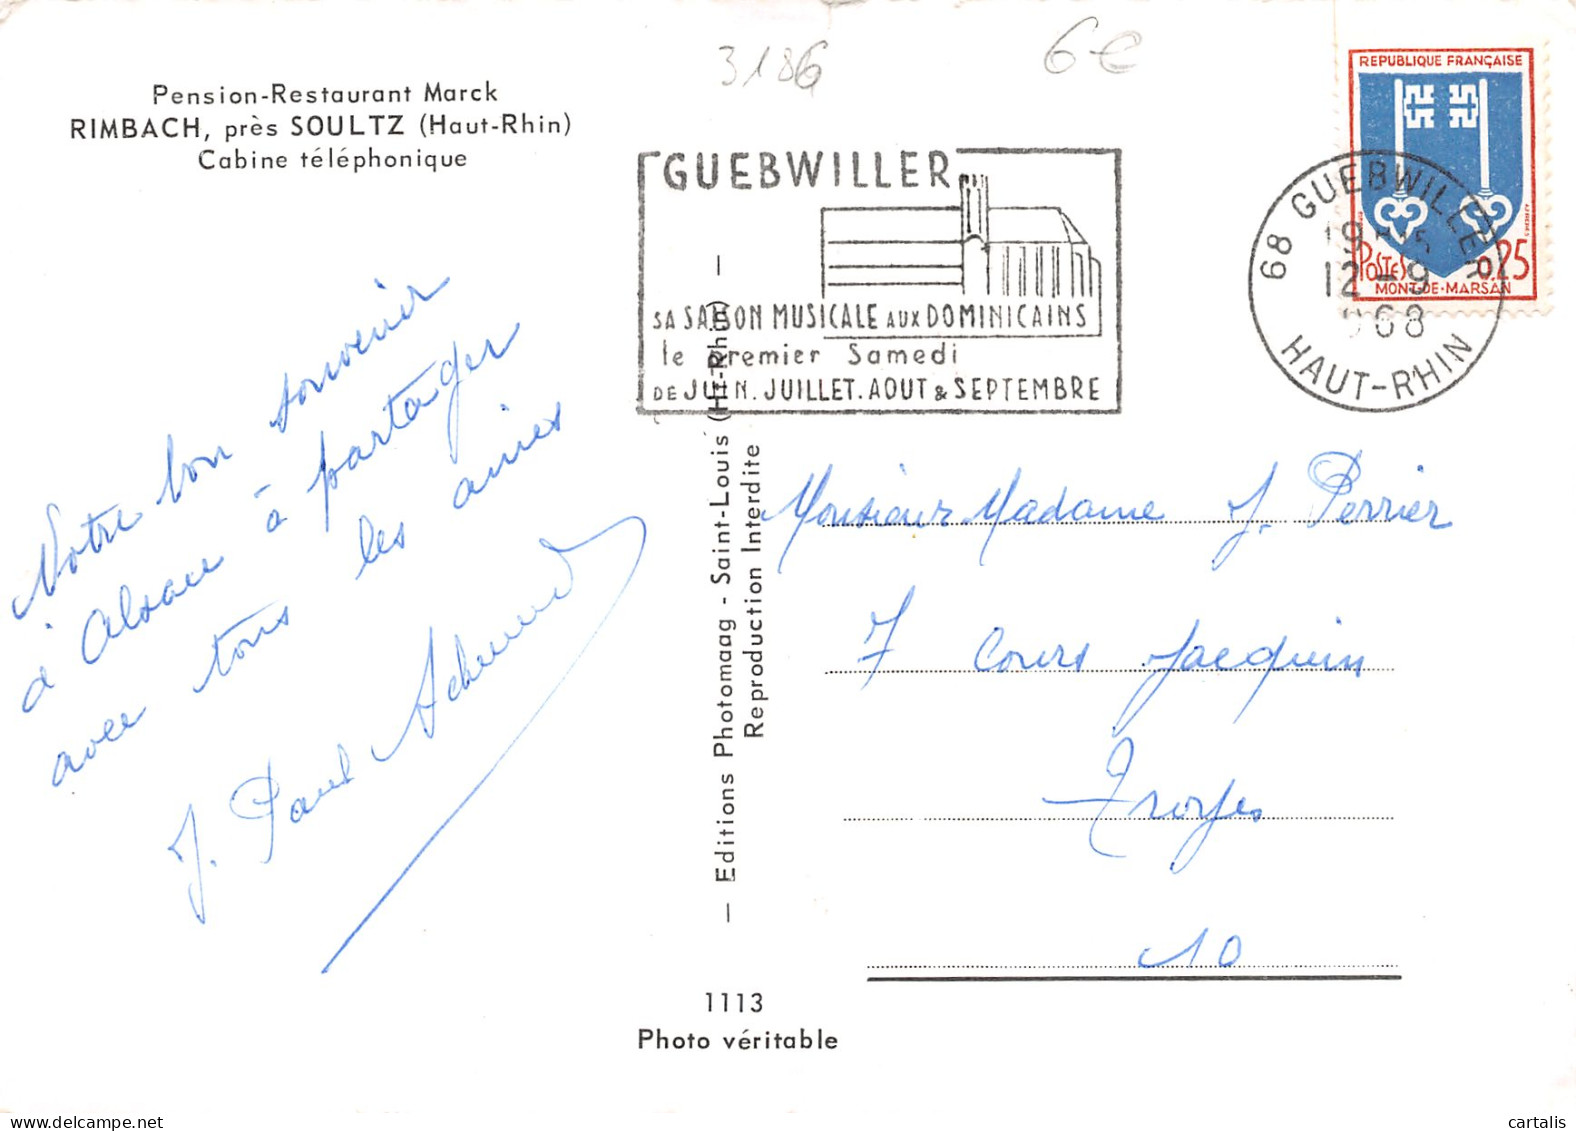 3186
6€
Pension-Restaurant Marck
RIMBACH, près SOULTZ (Haut-Rhin)
Cabine téléphonique
GUEBWILLER
SA SAISON MUSICALE AUX DOMINICAINS
le Premier Samedi
DE JUIN. JUILLET. AOUT & SEPTEMBRE
REPUBLIQUE FRANÇAISE
POSTES 0,25
MONT-DE-MARSAN
68 GUEBWILLER
12-9
1968
HAUT-RHIN
Notre bon souvenir
d'Alsace à partager
avec tous les amies
J. Paul
— Editions Photomaag - Saint-Louis (Ht-Rhin) —
Reproduction Interdite
Monsieur Madame J. Perrier
7 Cours Jacquin
Troyes
10
1113
Photo véritable
cartalis